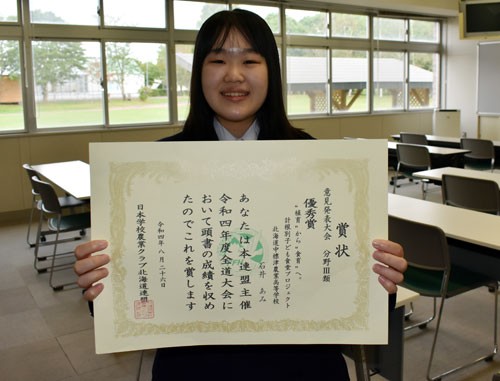 賞状
意見発表大会　分野Ⅲ類
優秀賞
“植育”から“食育”へ。
計根別子ども食堂プロジェクト
北海道中標津農業高等学校
石井　あみ
あなたは本連盟主催
令和四年度全道大会に
おいて頭書の成績を収め
たのでこれを賞します
令和四年八月二十六日
日本学校農業クラブ北海道連盟